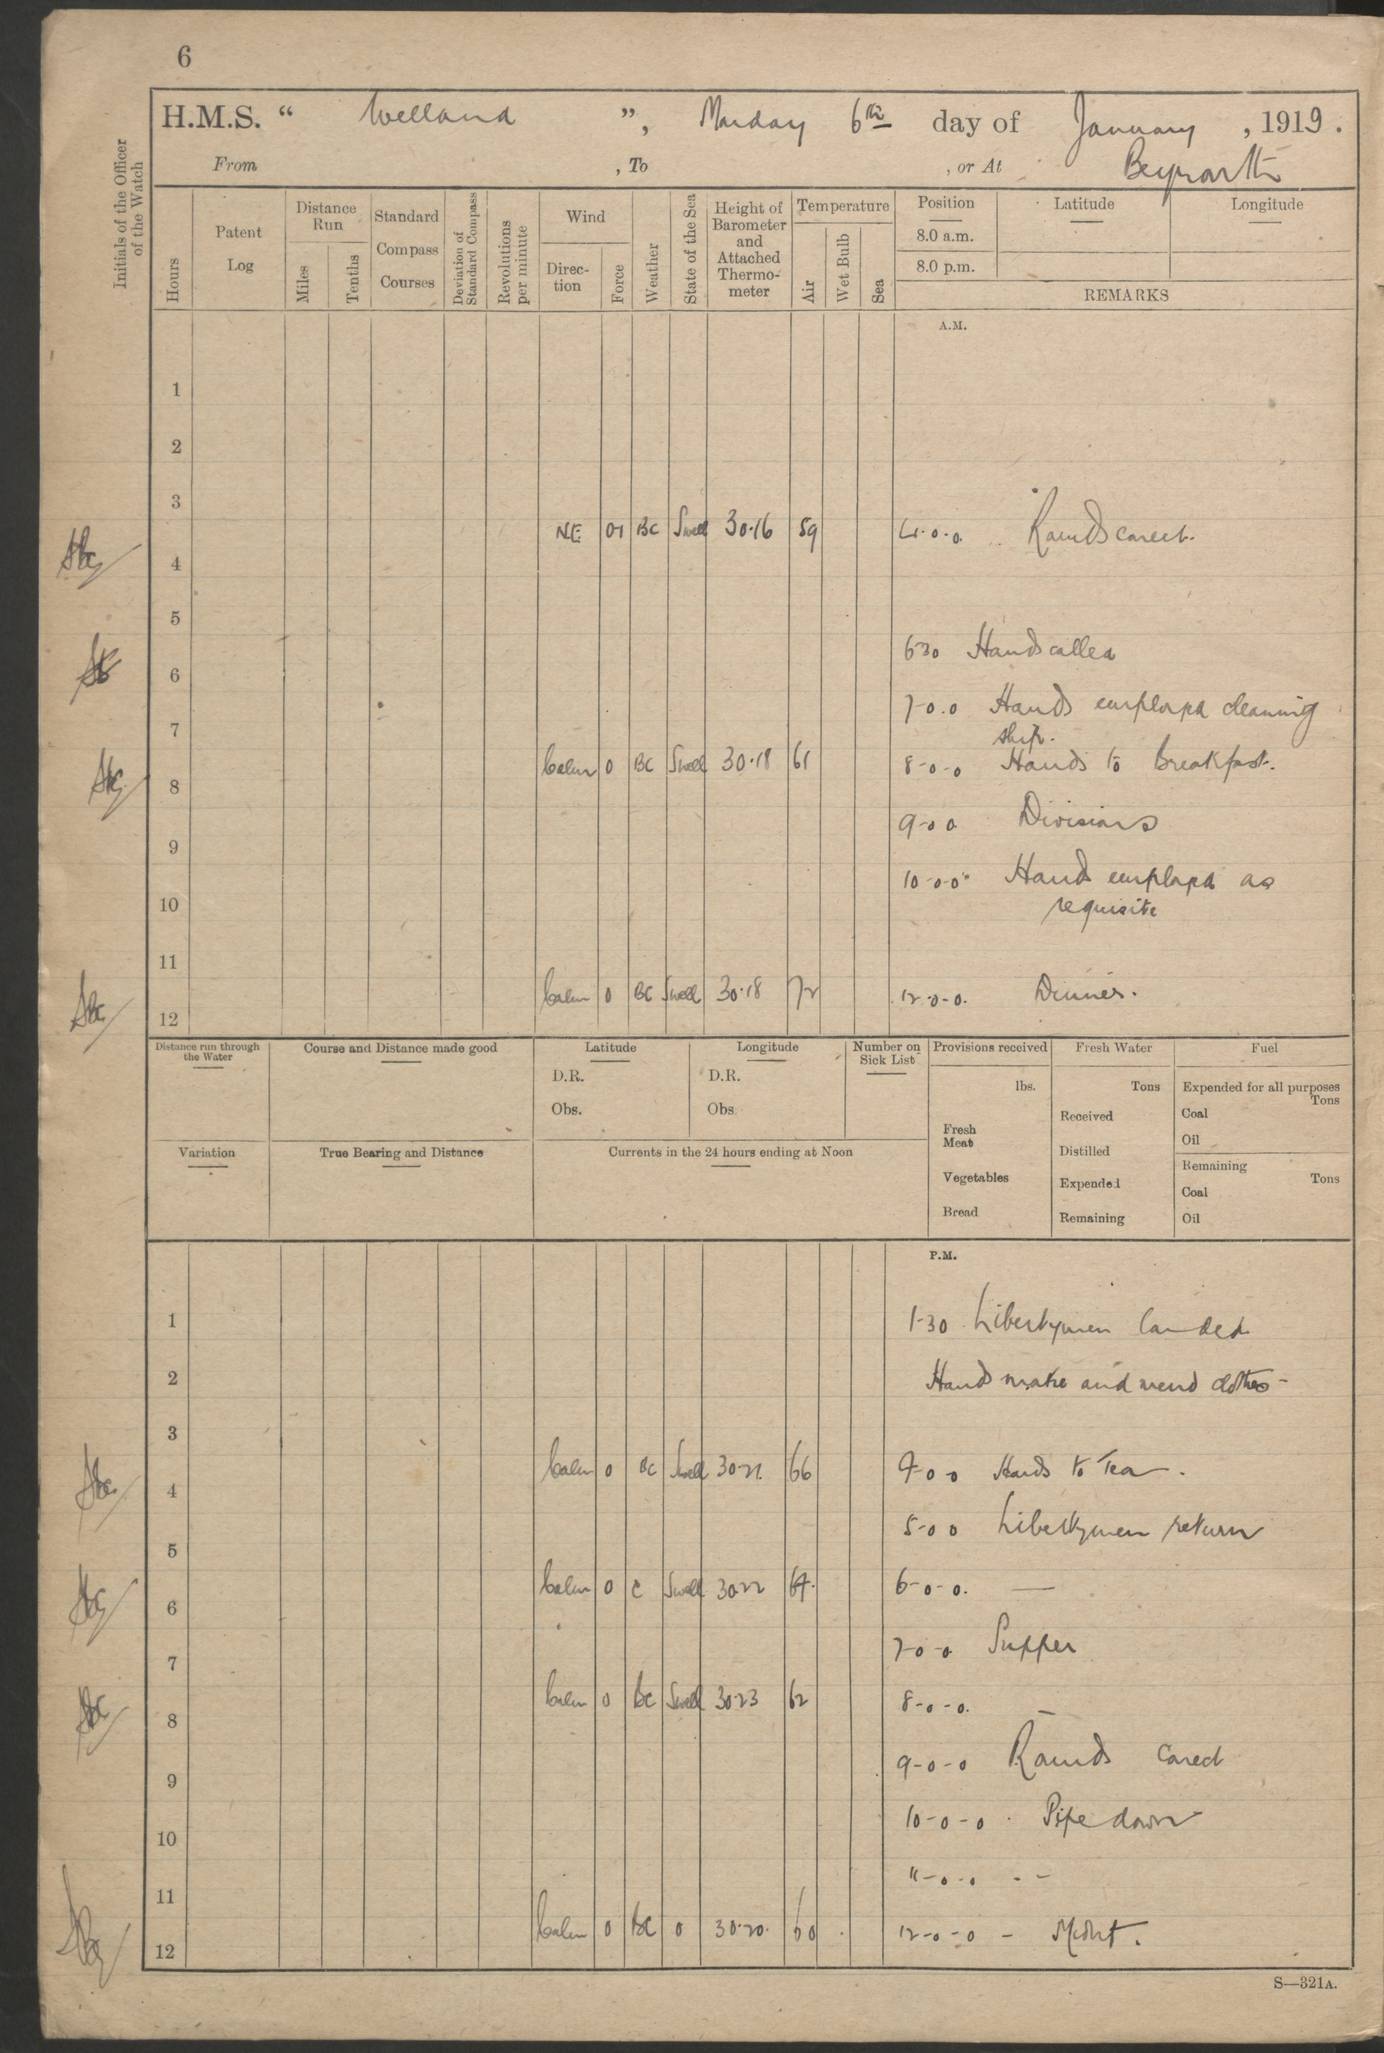 6
H.M.S. “ Welland ”, Monday 6th day of January, 1919.
From , To , or At Beyrouth
Initials of the Officer of the Watch
Hours
Patent Log
Distance Run
Miles
Tenths
Standard Compass Courses
Deviation of Standard Compass
Revolutions per minute
Wind
Direc-tion
Force
Weather
State of the Sea
Height of Barometer and Attached Thermo-meter
Temperature
Air
Wet Bulb
Sea
Position
8.0 a.m.
8.0 p.m.
Latitude
Longitude
REMARKS
A.M.
1
2
3
4 NE 01 BC Swell 30.16 59 4.0.0. Rounds correct.
5
6 630 Hands called
7 7-0.0 Hands employed cleaning
ship.
8 Calm 0 BC Swell 30.18 61 8-0-0 Hands to Breakfast.
9 9-0 0 Divisions
10 10-0-0 Hands employed as
requisite
11
12 Calm 0 BC Swell 30.18 72 12-0-0. Dinner.
Distance run through the Water
Course and Distance made good
Latitude
D.R.
Obs.
Longitude
D.R.
Obs.
Number on Sick List
Provisions received
lbs.
Fresh Meat
Vegetables
Bread
Fresh Water
Tons
Received
Distilled
Expended
Remaining
Fuel
Expended for all purposes
Tons
Coal
Oil
Remaining
Tons
Coal
Oil
Variation
True Bearing and Distance
Currents in the 24 hours ending at Noon
P.M.
1 1-30 Libertymen landed
2 Hands make and mend clothes-
3
4 Calm 0 BC Swell 30-21 66 4-0 0 Hands to Tea.
5 5-0 0 Libertymen return
6 Calm 0 C Swell 3022 64. 6-0-0. —
7 7-0 0 Supper
8 Calm 0 BC Swell 3023 62 8-0-0.
9 9-0-0 Rounds Corect
10 10-0-0 . Pipe down
11 11-0.0 . -
12 Calm 0 BC 0 30.20. 60 12-0-0 - Midnt.
S—321A.